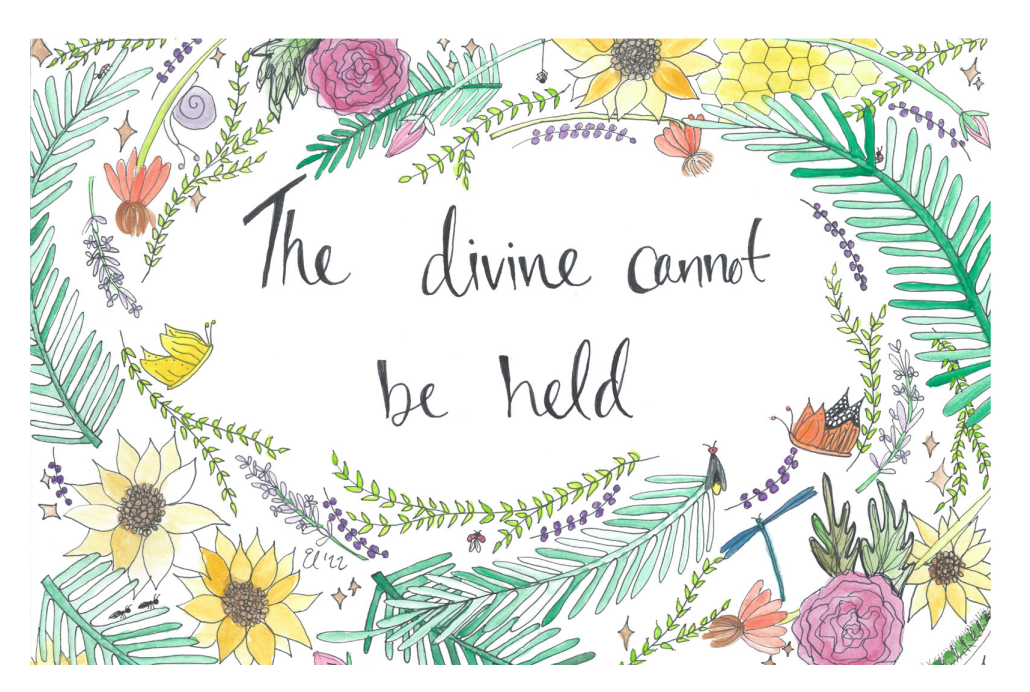 The divine cannot
be held